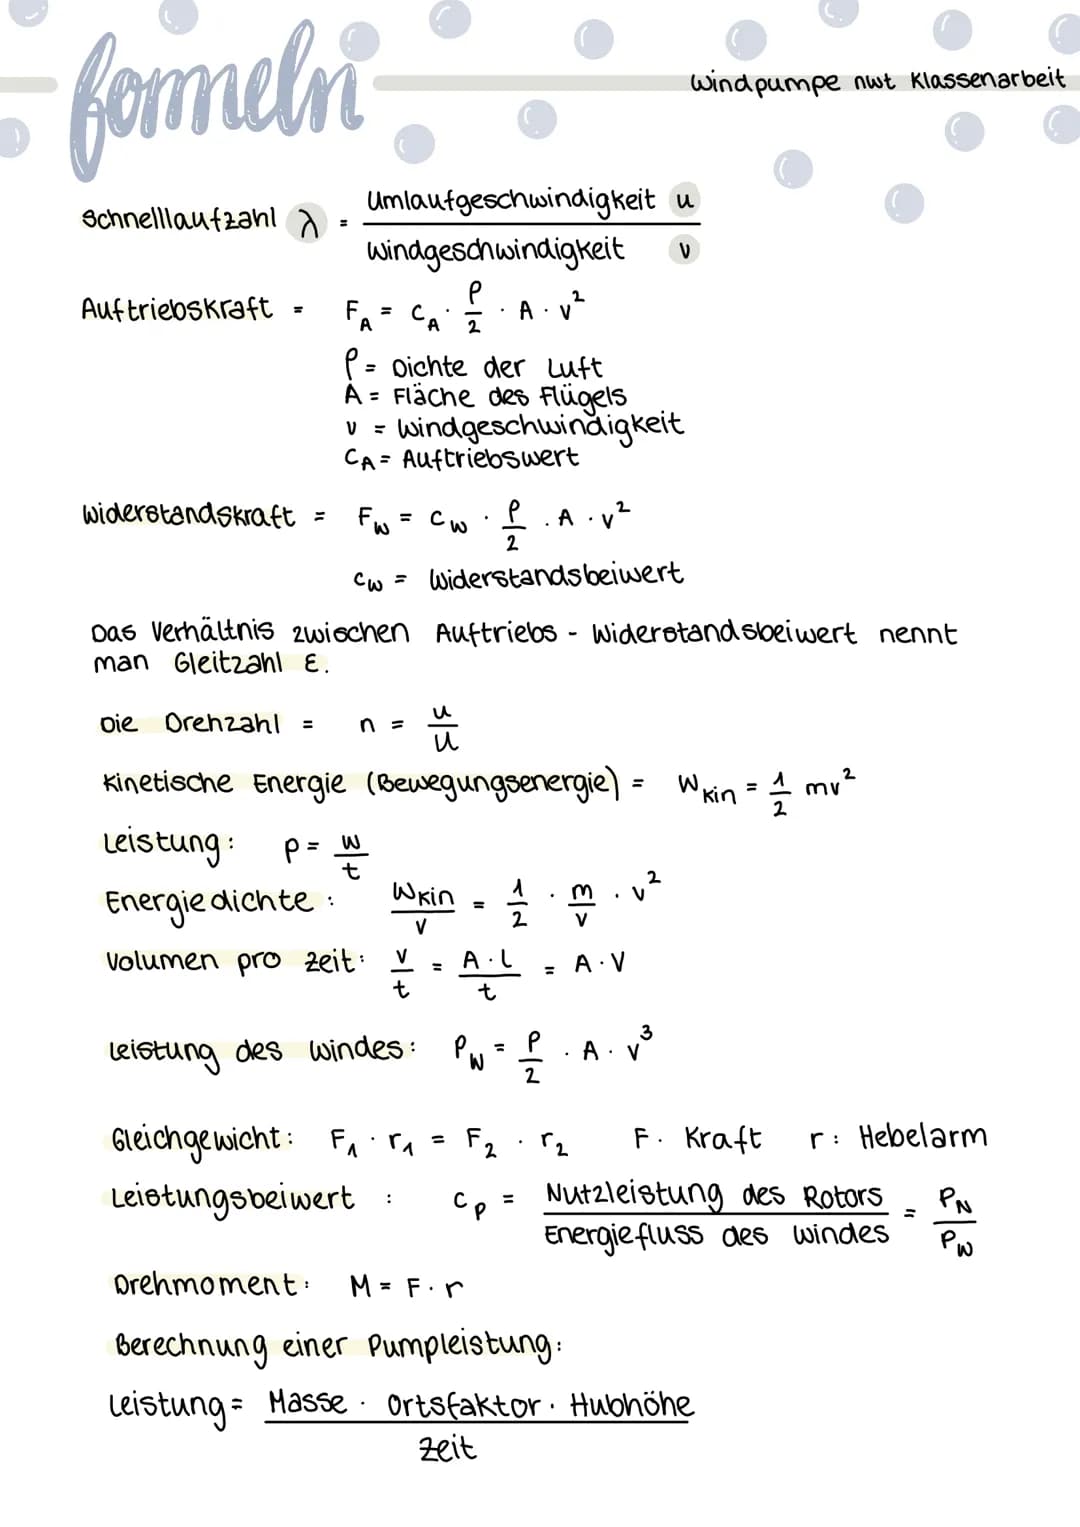 formeln
Windpumpe nwt Klassenarbeit
Schnelllaufzahl λ = Umlaufgeschwindigkeit u / Windgeschwindigkeit v
Auftriebskraft = F_A = C_A · ρ/2 · A · v²
ρ = Dichte der Luft
A = Fläche des Flügels
v = Windgeschwindigkeit
C_A = Auftriebswert
Widerstandskraft = F_W = C_W · ρ/2 · A · v²
C_W = Widerstandsbeiwert
Das Verhältnis zwischen Auftriebs - Widerstandsbeiwert nennt
man Gleitzahl ε.
Die Drehzahl = n = u/U
Kinetische Energie (Bewegungsenergie) = W_kin = 1/2 mv²
Leistung: P = W/t
Energiedichte: W_kin/V = 1/2 · m/V · v²
Volumen pro Zeit: V/t = A·L/t = A·V
Leistung des Windes: P_W = ρ/2 · A · v³
Gleichgewicht: F₁ · r₁ = F₂ · r₂ F. Kraft r: Hebelarm
Leistungsbeiwert : C_P = Nutzleistung des Rotors / Energiefluss des Windes = P_N/P_W
Drehmoment: M = F · r
Berechnung einer Pumpleistung:
Leistung = Masse · Ortsfaktor · Hubhöhe / Zeit